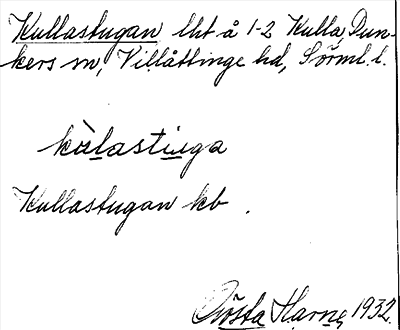 Kullastugan lht å 1-2 Kulla, Dun-
kers sn, Villåttinge hd, Sörml. l.
kùlastuga
Kullastugan kb.
Gösta Harne, 1932.